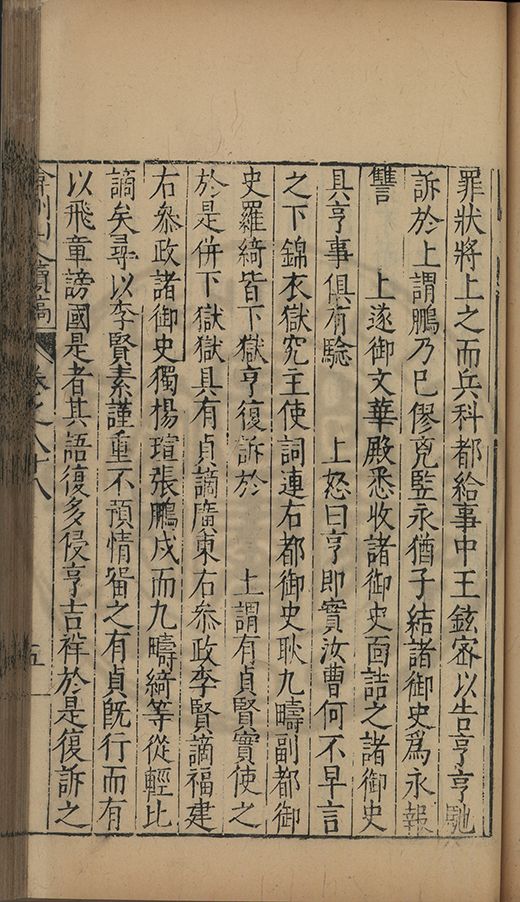 罪狀將上之而兵科都給事中王鉉密以告亨亨馳
訴於上謂鵬乃已僇竟監永猶子結諸御史爲永報
讐 上遂御文華殿悉收諸御史面詰之諸御史
具亨事俱有驗 上怒曰亨即實汝曹何不早言
之下錦衣獄究主使詞連右都御史耿九疇副都御
史羅綺皆下獄亨復訴於 上謂有貞賢實使之
於是併下獄獄具有貞謫廣東右叅政李賢謫福建
右叅政諸御史獨楊瑄張鵬戍而九疇綺等從輕比
謫矣尋以李賢素謹重不預情留之有貞旣行而有
以飛章謗國是者其語復多侵亨吉祥於是復訴之
卷之八十八
五